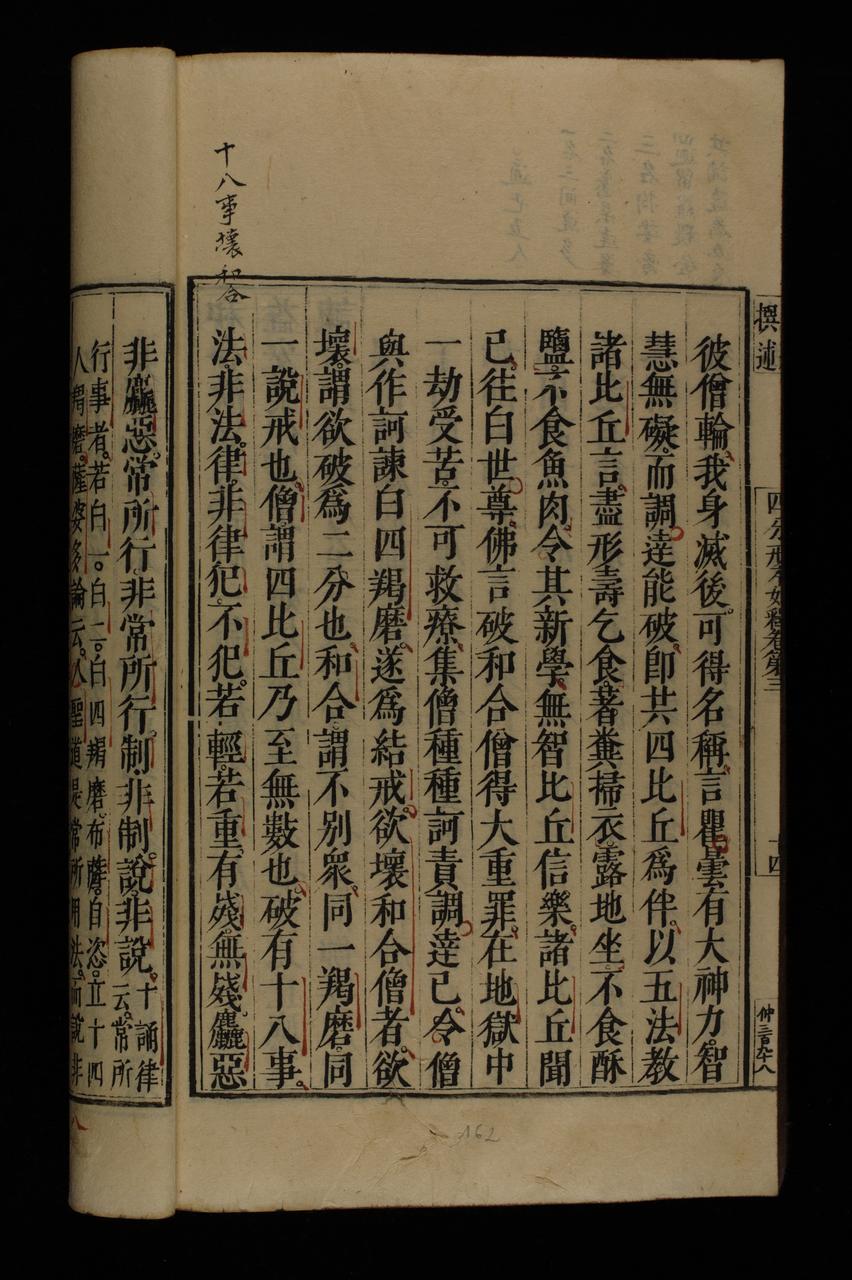 十八事壞和合
撰述
四分戒本如釋卷第三
十四
仲三百九十八
彼僧輪。我身滅後。可得名稱。言瞿曇有大神力。智
慧無礙。而調達能破。即共四比丘為伴。以五法教
諸比丘言。盡形壽乞食。著糞掃衣。露地坐。不食酥
鹽。不食魚肉。令其新學。無智比丘信樂。諸比丘聞
已。往白世尊。佛言破和合僧得大重罪。在地獄中
一劫受苦。不可救療。集僧種種訶責調達已。令僧
與作訶諫白四羯磨。遂為結戒。欲壞和合僧者。欲
壞。謂欲破為二分也。和合。謂不別眾。同一羯磨。同
一說戒也。僧。謂四比丘乃至無數也。破有十八事。
法。非法。律。非律。犯。不犯。若輕。若重。有殘。無殘。麤惡
非麤惡。常所行。非常所行。制。非制。說。非說。十誦律
云。常所
行事者。若白一。白二。白四羯磨。布薩。自恣。立十四
人羯磨。薩婆多論云。八聖道是常所用法。而說非
162